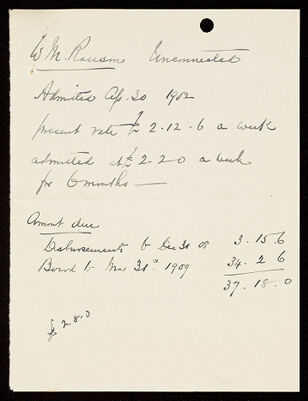 W M. Ransom Uncertified
Admitted Ap. 30 1902
present rate £2-12-6 a week
admitted at £2-2-0 a week
for 6 months —
Amnt due
Disbursements to Dec 31 08 3. 15. 6
Board to Mar 31st 1909 34. 2 6
37. 18. 0
£ 2.8.0